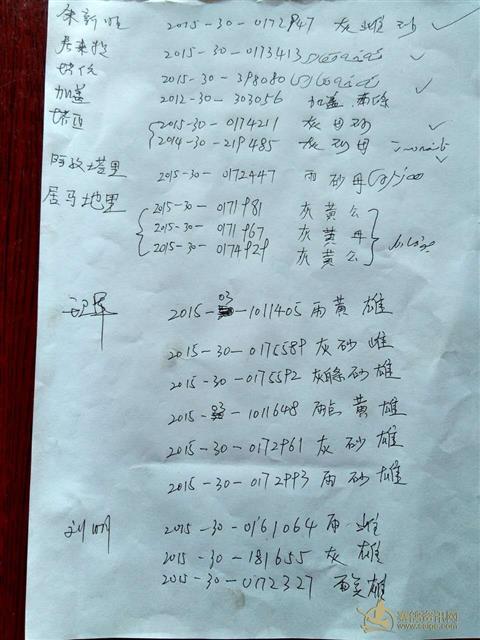 朱新旺 2015-30-0172947 灰雌砂
2015-30-0173413
2015-30-398080
加盖 2012-30-303056 加盖
塔西 2015-30-0174211 灰母砂
2014-30-219485 灰砂母
阿政塔里 2015-30-0172447 雨砂母
居马地里 2015-30-0171981 灰黄公
2015-30-0171967 灰黄母
2015-30-0174929 灰黄公
2015-03-1011405 雨黄雄
2015-30-0175589 灰砂雌
2015-30-0175592 灰條砂雄
2015-03-1011648 雨白黄雄
2015-30-0172961 灰砂雄
2015-30-0172993 雨砂雄
刘明 2015-30-0161064 雨雌
2015-30-181655 灰雄
2015-30-0172327 雨雄
赛鸽资讯网